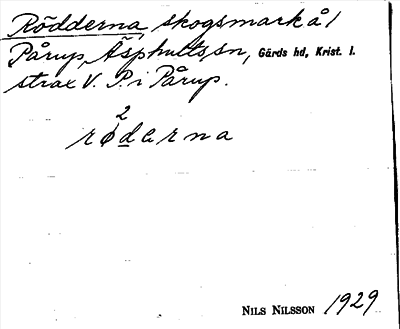 Rödderna, skogsmark å 1
Pårup, Äsphults sn, Gärds hd, Krist. l.
strax V. P. i Pårup.
2
rødaerna
NILS NILSSON 1929